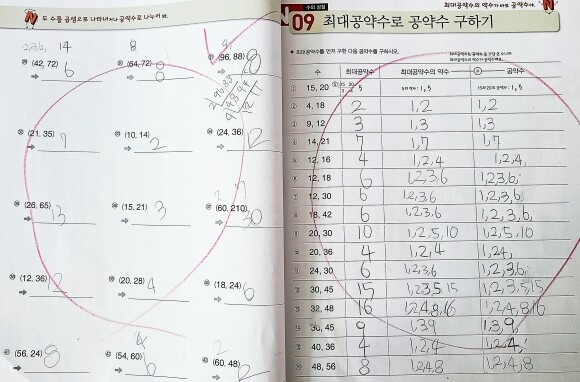 두 수를 곱셈으로 나타내거나 공약수로 나누어 봐.
(42, 72) → 6
(64, 72) → 8
(96, 88) → 8
(21, 35) → 7
(10, 14) → 2
(24, 36) → 12
(26, 65) → 13
(15, 21) → 3
(60, 210) → 30
(12, 36) → 12
(20, 28) → 4
(18, 24) → 6
(56, 24) → 8
(54, 60) → 6
(60, 48) → 2
최대공약수의 약수가 바로 공약수야.
수의 성질
09 최대공약수로 공약수 구하기
최대공약수를 먼저 구한 다음 공약수를 구하시오.
수 최대공약수 최대공약수의 약수 공약수
15, 20 5 5의 약수 : 1, 5 15와 20의 공약수 : 1, 5
4, 18 2 1, 2 1, 2
9, 12 3 1, 3 1, 3
14, 21 7 1, 7 1, 7
12, 16 4 1, 2, 4 1, 2, 4
12, 18 6 1, 2, 3, 6 1, 2, 3, 6
12, 30 6 1, 2, 3, 6 1, 2, 3, 6
18, 42 6 1, 2, 3, 6 1, 2, 3, 6
20, 30 10 1, 2, 5, 10 1, 2, 5, 10
20, 36 4 1, 2, 4 1, 2, 4
24, 30 6 1, 2, 3, 6 1, 2, 3, 6
30, 45 15 1, 2, 3, 5, 15 1, 2, 3, 5, 15
32, 48 16 1, 2, 4, 8, 16 1, 2, 4, 8, 16
36, 45 9 1, 3, 9 1, 3, 9
40, 36 4 1, 2, 4 1, 2, 4
48, 56 8 1, 2, 4, 8 1, 2, 4, 8